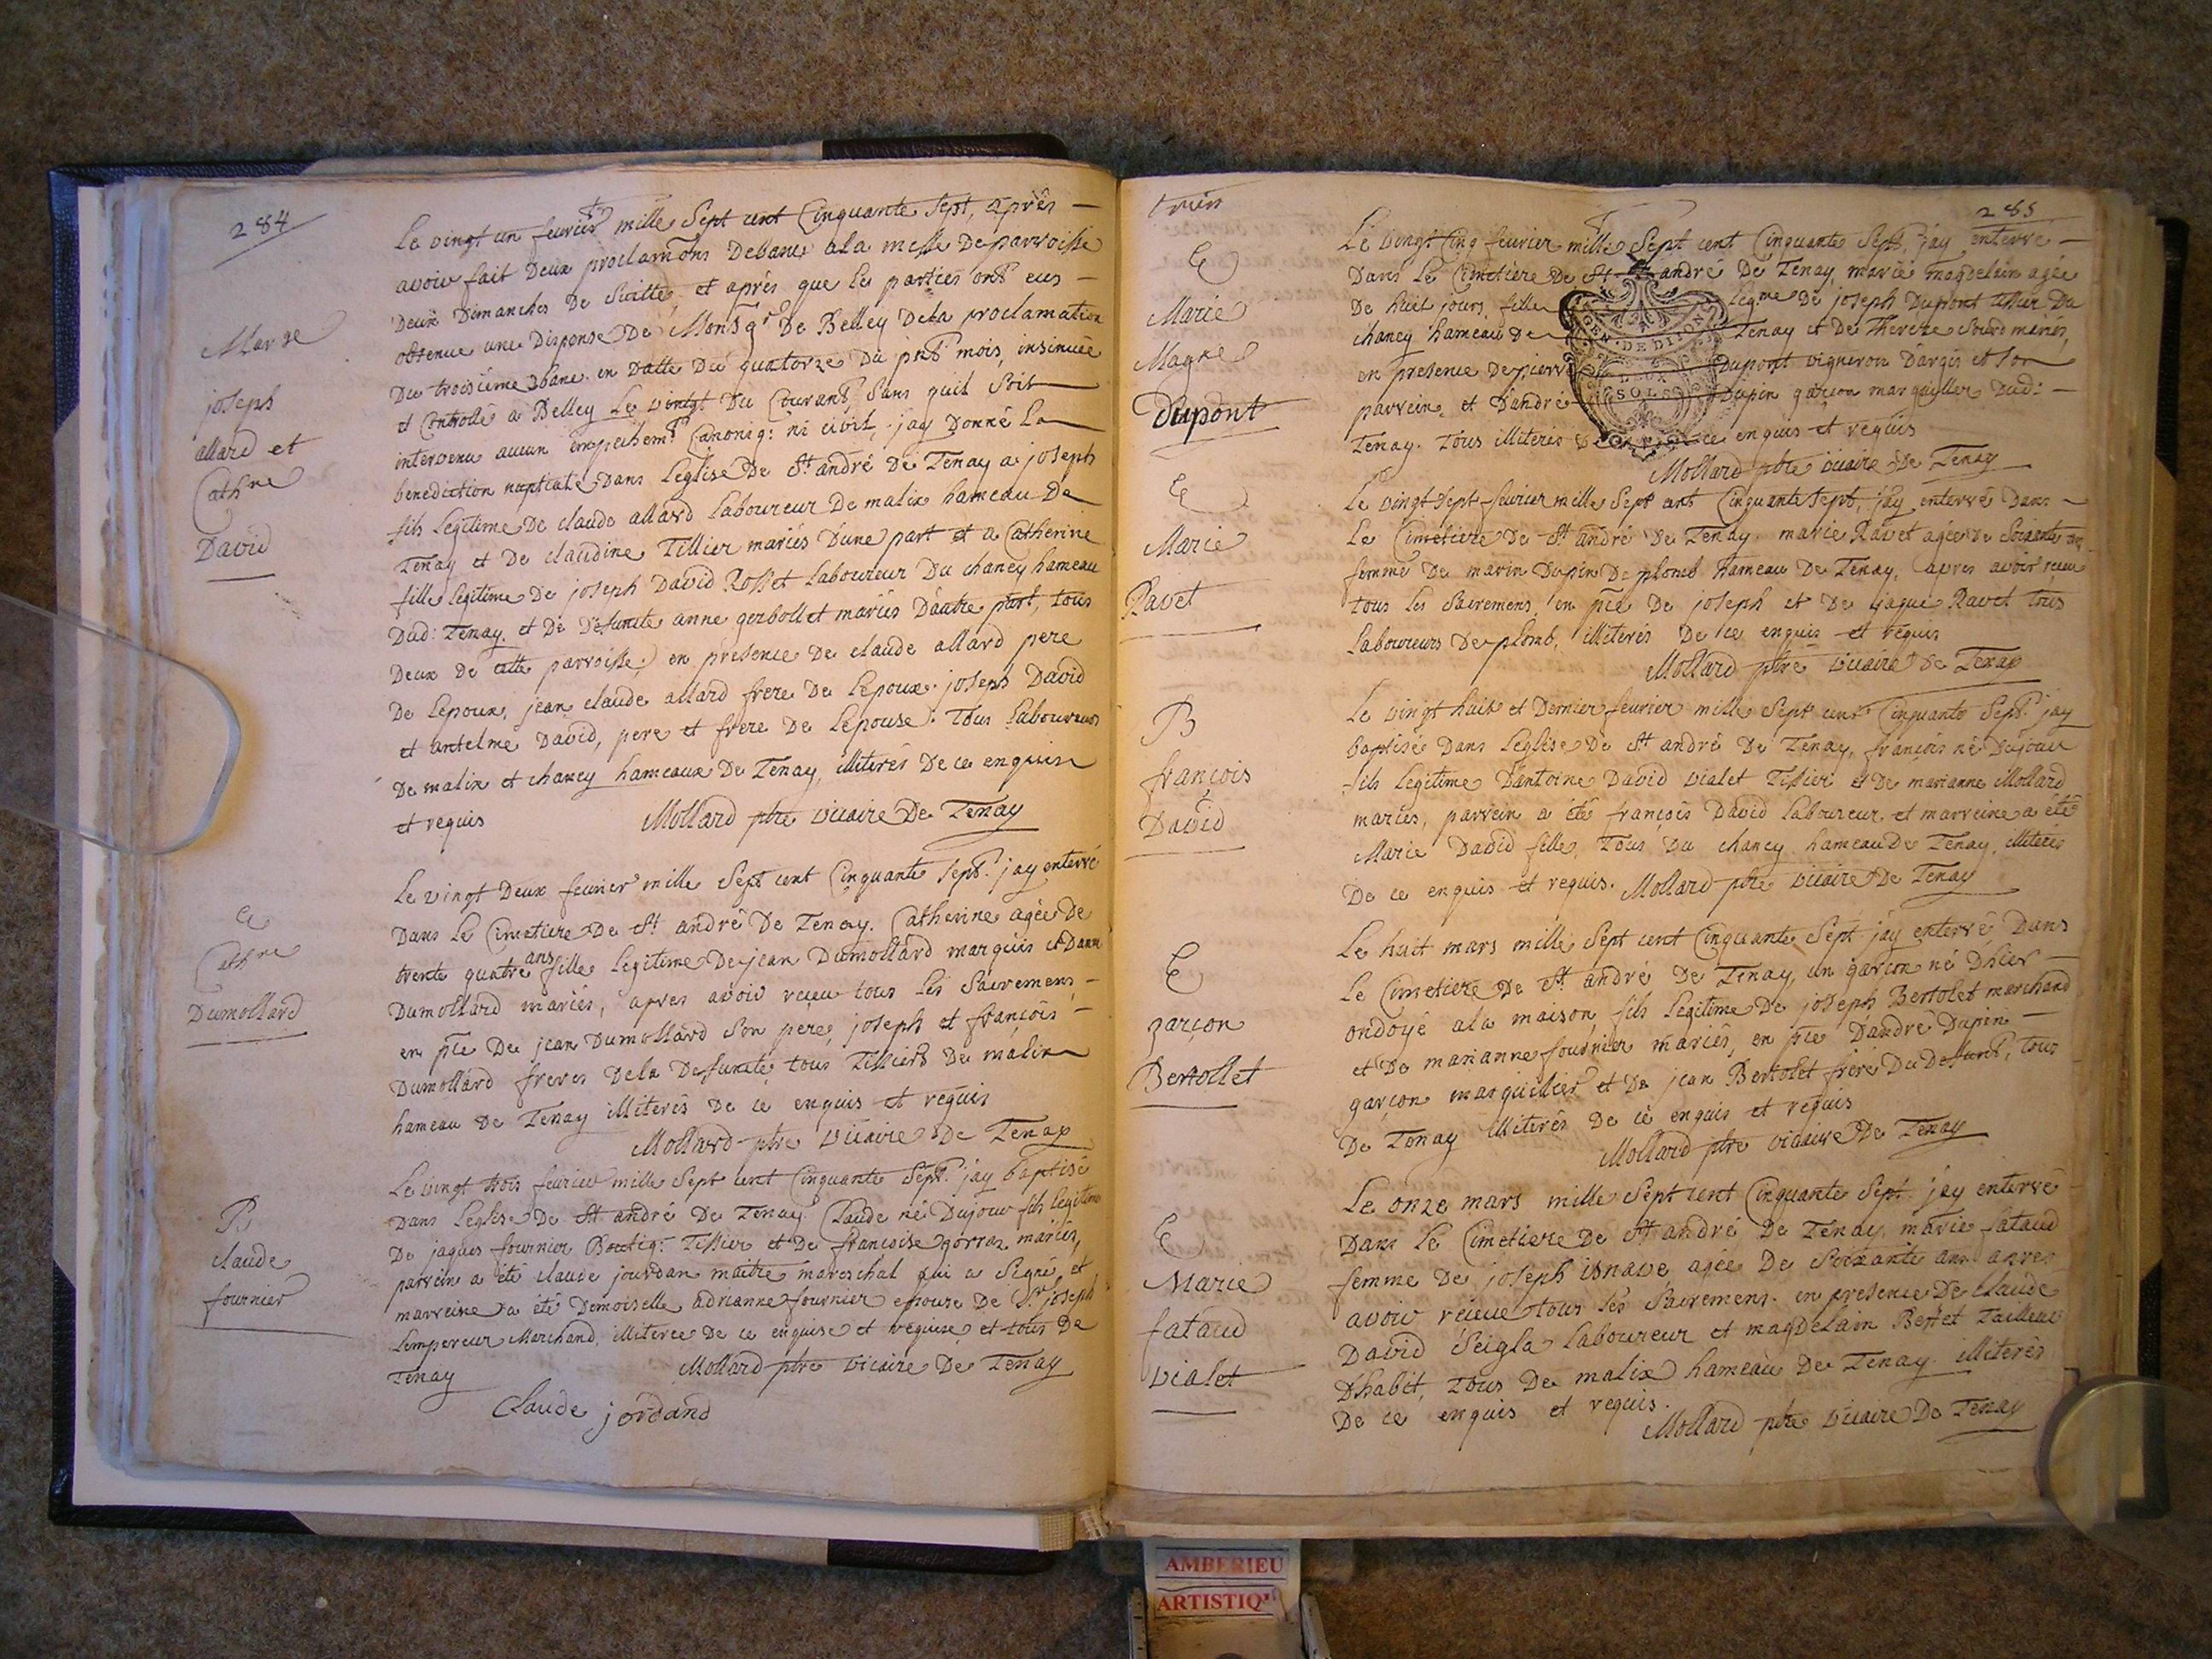 284
Le vingt un fevrier mille Sept cent Cinquante Sept, après
avoir fait Deux proclamaons Debanc ala messe Deparroisse
Deux Dimanches De Suitte, et après que les parties ont eus
obtenue une Dispense De Monsgr De Belley Dela proclamation
Du troisieme banc en Datte Du quatorze Du pnt mois, insinuée
et Controlée a Belley Le vingt Du Courant, Sans quil Soit
intervenu aucun empechemt Canoniq: ni civil, jay Donné La
benediction nuptiale Dans Leglise De St andré De Tenay a joseph
fils Legitime De claude allard Laboureur De malix hameau De
Tenay et De claudine Tillier mariés Dune part et a Catherine
fille Legitime De joseph David Rosset Laboureur Du chaney hameau
Dud: Tenay, et De Defuncte anne gerbollet mariés Dautre part, tous
Deux De cette parroisse; en présence De claude allard pere
De Lepoux, jean claude allard frere De Lepoux. joseph David
et antelme David, pere et frere De Lepouse. Tous Laboureurs
De malix et chaney hameaux De Tenay, illiterés De ce enquis
et requis
Mollard ptre vicaire De Tenay
Marge
joseph
allard et
Cathne
David
Le vingt Deux fevrier mille Sept cent Cinquante Sept. jay enterré
Dans Le Cimetiere De St andré De Tenay. Catherine agée De
trente quatre ans fille Legitime De jean Dumollard marquis et Danne
Dumollard mariés, apres avoir receu tous les Sacremens,
en pce De jean Dumollard Son pere, joseph et françois
Dumollard freres Dela Defuncte, tous Tissiers De malix
hameau De Tenay illiterés De ce enquis et requis
Mollard ptre vicaire De Tenay
E
Cathne
Dumollard
Le vingt trois fevrier mille Sept cent Cinquante Sept. jay baptisé
Dans Leglise De St andré De Tenay. Claude né Dujour fils Legitime
De jaques fournier Boutiq: Tissier et De françoise gorraz mariés,
parrein a été claude jourdan maitre mareschal qui a Signé, et
marreine a été Demoiselle adrianne fournier epouse De Sr joseph
Lempereur Marchand, illiterée De ce enquise et requise, et tous De
Tenay
Mollard ptre vicaire De Tenay
Claude jordand
B
claude
fournier
285
Le vingt Cinq fevrier mille Sept cent Cinquante Sept. jay enterré
Dans Le Cimetiere De St andré De Tenay, marie magdelain agée
De huit jours, fille Legme De joseph Dupont tissier Du
chaney hameau De Tenay et De Therese Sourd mariés,
en presence De pierre Dupont vigneron Dargis et Son
parrein, et Dandré Dupin garçon marguillier Dud:
Tenay. Tous illiterés De ce enquis et requis
GEN. DE DIJON
SOLS
Mollard ptre vicaire De Tenay
E
Marie
Magne
Dupont
Le vingt Sept fevrier mille Sept cent Cinquante Sept, jay enterré Dans
Le Cimetiere De St andré De Tenay. marie Ravet agée De Soixante ans
femme De marin Dupin De plomb hameau De Tenay, apres avoir receu
tous les Sacremens, en pce De joseph et De jaque Ravet tous
Laboureurs De plomb, illiterés De ce enquis et requis
Mollard ptre vicaire De Tenay
E
Marie
Ravet
Le vingt huit et Dernier fevrier mille Sept cent Cinquante Sept. jay
baptisé Dans Leglise De St andré De Tenay, françois né Dujour
fils Legitime Dantoine David vialet Tissier et De marianne Mollard
mariés, parrein a été françois David Laboureur et marreine a été
Marie David fille, Tous Du chaney hameau De Tenay, illiterés
De ce enquis et requis. Mollard ptre vicaire De Tenay
B
françois
David
Le huit mars mille Sept cent Cinquante Sept jay enterré Dans
Le Cimetiere De St andré De Tenay, un garçon né Dhier
ondoyé ala maison, fils Legitime De joseph Bertolet marchand
et De marianne fournier mariés, en pce Dandré Dupin
garçon marguillier et De jean Bertolet frere Du Defunt, tous
De Tenay illiterés De ce enquis et requis
Mollard ptre vicaire De Tenay
E
garçon
Bertollet
Le onze mars mille Sept cent Cinquante Sept. jay enterré
Dans Le Cimetiere De St andré De Tenay, marie fataud
femme De joseph agée De Soixante ans apres
avoir receue tous les Sacremens. en presence De Claude
David Seigla Laboureur et magdelain Bertet Tailleur
Dhabit, tous De malix hameau De Tenay. illiterés
De ce enquis et requis.
Mollard ptre vicaire De Tenay
E
Marie
fataud
vialet
AMBERIEU
ARTISTIQ